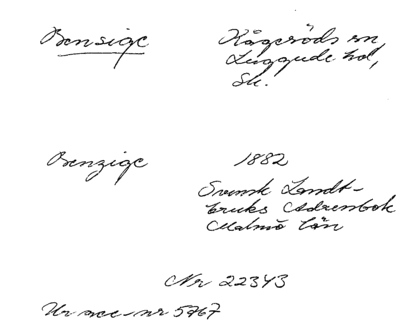 Bensige Kågeröds sn
Luggude hd,
Sk.
Benzige 1882
Svensk Landt-
bruks Adressbok
Malmö län
Nr 22343
Ur acc-nr 5767